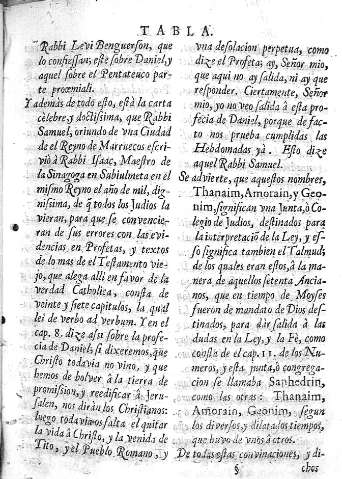 TABLA.
Rabbi Levi Benguerson, que
lo confiessan; este sobre Daniel, y
aquel sobre el Pentateuco par-
te proœmiali.
Y además de todo esto, està la carta
cèlebre, y doctissima, que Rabbi
Samuel, oriundo de vna Ciudad
de el Reyno de Marruecos escri-
viò à Rabbi Isaac, Maestro de
la Sinagoga en Subiulmeta en el
mismo Reyno el año de mil, dig-
nissima, de q̃ todos los Judios la
vieran, para que se convencie-
ran de sus errores con las evi-
dencias en Profetas, y textos
de lo mas de el Testamento vie-
jo, que alega alli en favor de la
verdad Catholica, consta de
veinte y siete capitulos, la qual
lei de verbo ad verbum. Y en el
cap. 8. dize assi sobre la profe-
cia de Daniel: si dixeremos, que
Christo todavia no vino, y que
hemos de bolver à la tierra de
promission, y reedificar à Jeru-
salen, nos diràn los Christianos:
luego todaviavos falta el quitar
la vida à Christo, y la venida de
Tito, y el Pueblo Romano, y
vna desolacion perpetua, como
dize el Profeta: ay, Señor mio,
que aqui no ay salida, ni ay que
responder. Ciertamente, Señor
mio, yo no veo salida à esta pro-
fecia de Daniel, porque de fac-
to nos prueba cumplidas las
Hebdomadas yà. Esto dize
aquel Rabbi Samuel.
Se advierte, que aquestos nombres,
Thanaim, Amorain, y Geo-
nim, significan vna Junta, ò Co-
legio de Judios, destinados para
la interpretaciò de la Ley, y es-
so significa tambien el Talmud;
de los quales eran estos, à la ma-
nera de aquellos setenta Ancia-
nos, que en tiempo de Moyses
fueron de mandato de Dios des-
tinados, para dàr salida à las
dudas en la Ley, y la Fè, como
consta de el cap. 11. de los Nu-
meros, y esta junta, ò congrega-
cion se llamaba Saphedrin,
como las otras: Thanaim,
Amorain, Geonim, segun
los diversos, y dilatados tiempos,
que huvo de vnos à otros.
De todas estas convinaciones, y di-
§
chos